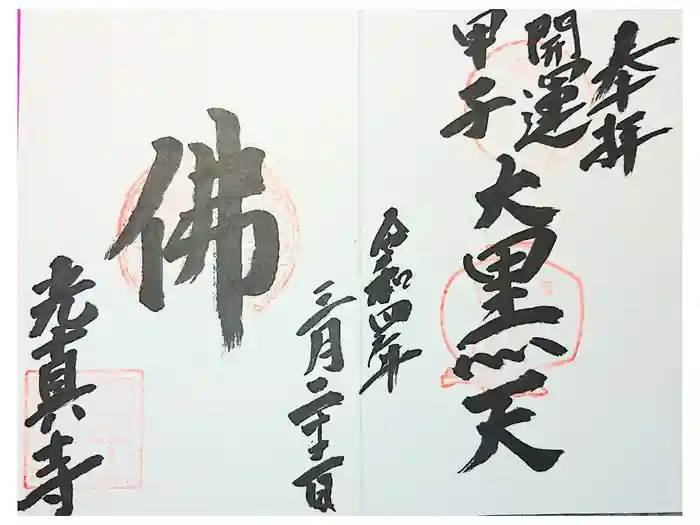 奉拝
開運
甲子
大黒天
令和四年
三月二十一日
佛
光真寺